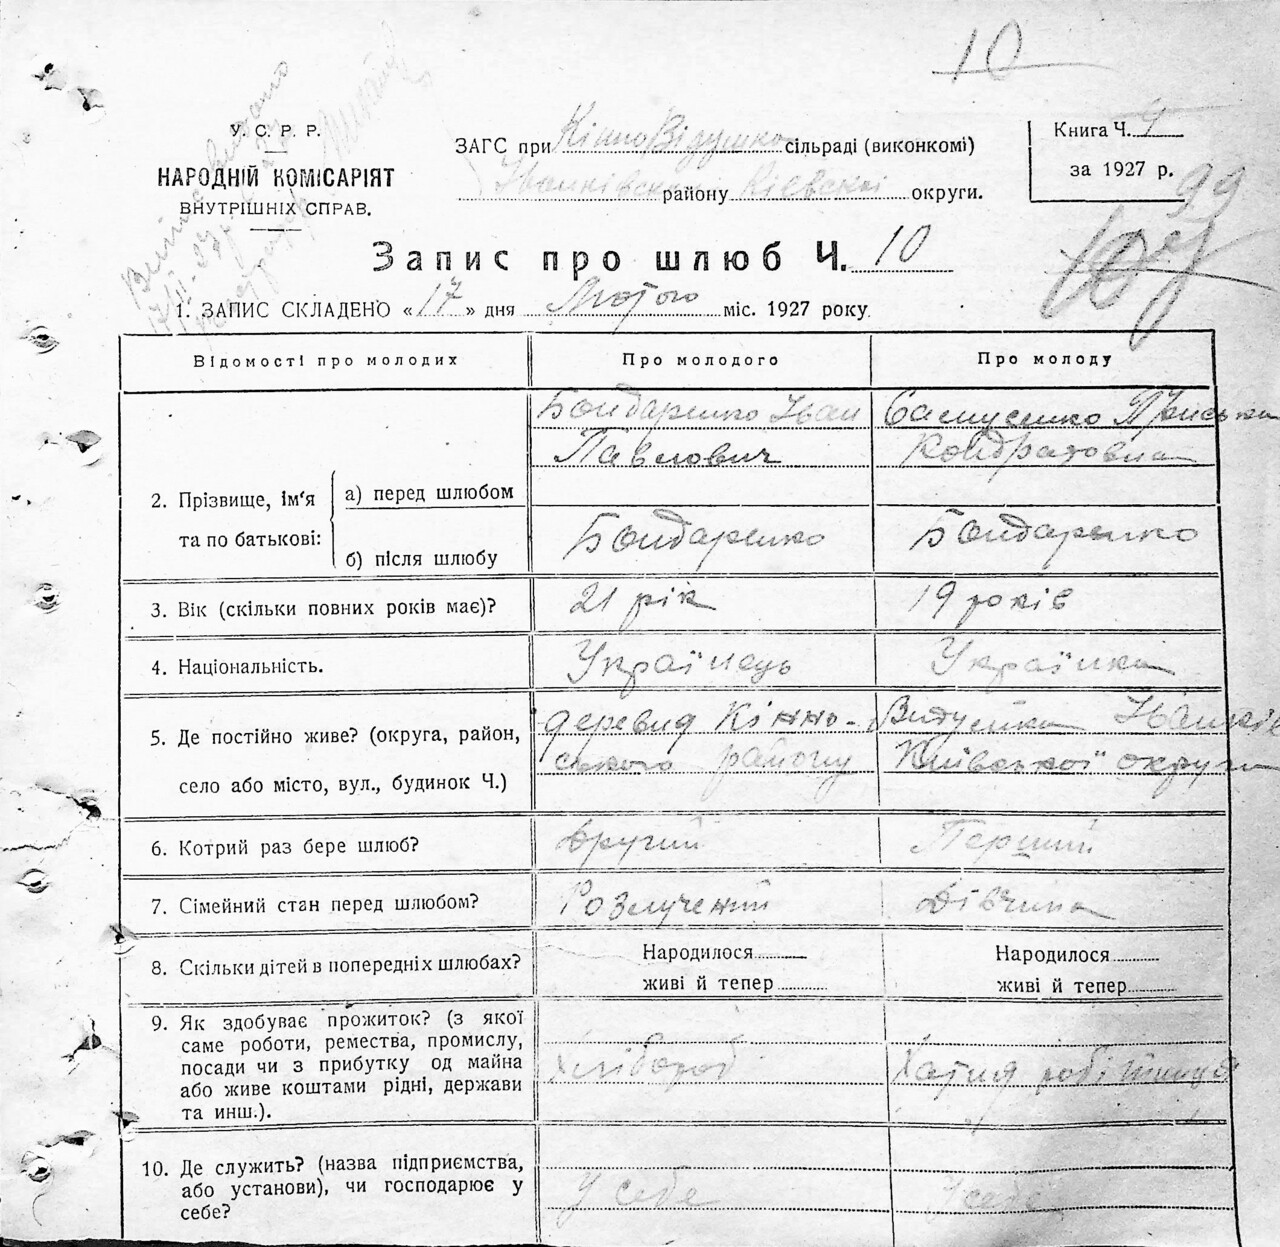 10
У. С. Р. Р.
НАРОДНІЙ КОМІСАРІЯТ
ВНУТРІШНІХ СПРАВ.
ЗАГС при КінноВідушко сільраді (виконкомі)
району Кіевскої округи.
Книга Ч. 4
за 1927 р.
99
Запис про шлюб Ч. 10
1. ЗАПИС СКЛАДЕНО «17» дня Лютого міс. 1927 року
Відомості про молодих
Про молодого
Про молоду
2. Прізвище, ім'я та по батькові:
а) перед шлюбом
Бондаренко Іван
Павлович
Самусенко Пріська
Кондратовна
б) після шлюбу
Бондаренко
Бондаренко
3. Вік (скільки повних років має)?
21 рік
19 років
4. Національність.
Українець
Українка
5. Де постійно живе? (округа, район,
село або місто, вул., будинок Ч.)
ського району
Київської округи
6. Котрий раз бере шлюб?
Другий
Перший
7. Сімейний стан перед шлюбом?
Розлучений
Дівчина
8. Скільки дітей в попередніх шлюбах?
Народилося
живі й тепер
Народилося
живі й тепер
9. Як здобуває прожиток? (з якої
саме роботи, ремества, промислу,
посади чи з прибутку од майна
або живе коштами рідні, держави
та инш.).
Хлібороб
Хатня робітниця
10. Де служить? (назва підприємства,
або установи), чи господарює у
себе?
У себе
У себе